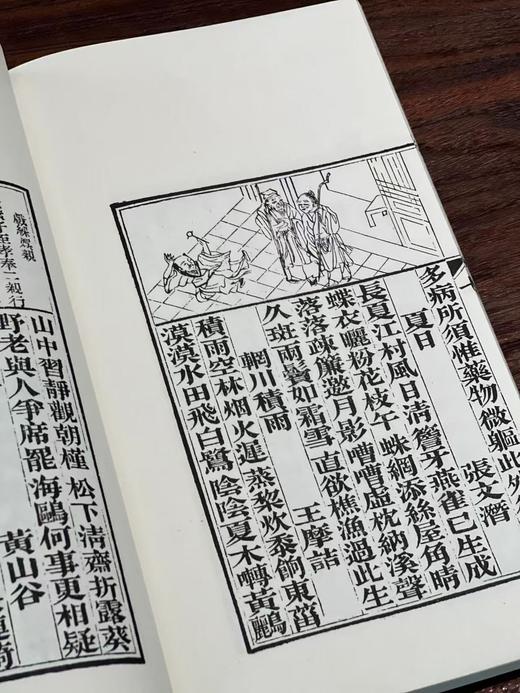 多病所須惟藥物微軀此外
夏日 張文潛
長夏江村風日清簷牙燕雀已生成
蝶衣曬粉花枝午蛛網添絲屋角晴
落落疎簾邀月影嘈嘈虛枕納溪聲
久班兩鬢如霜雪直欲樵漁過此生
輞川積雨 王摩詰
積雨空林烟火遲蒸藜炊黍餉東菑
漠漠水田飛白鷺陰陰夏木囀黃鸝
戲綵娛親
至孝奉二親行
山中習靜觀朝槿松下清齋折露葵
野老與人爭席罷海鷗何事更相疑
黃山谷